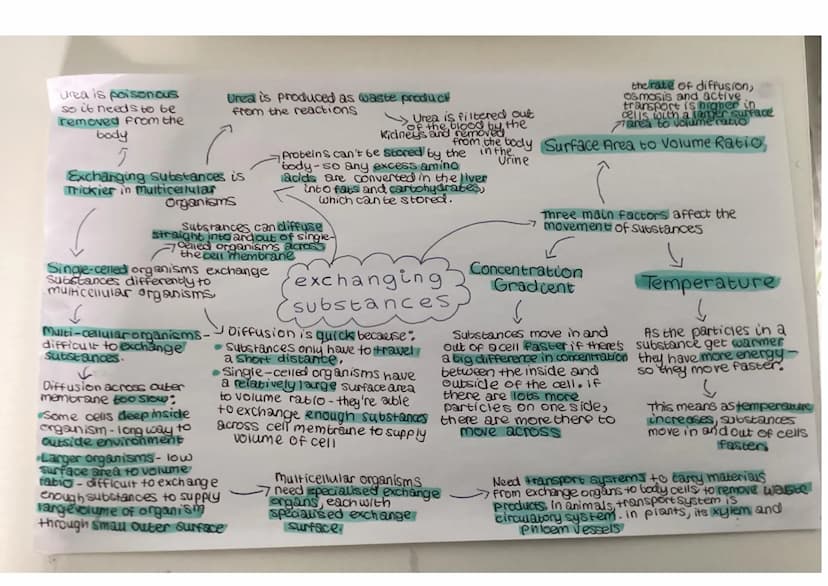 Urea is poisonous
so it needs to be
removed from the
body
Urea is produced as waste product
from the reactions
Urea is filtered out
of the blood by the
kidneys and removed
from the body
in the
urine
the rate of diffusion,
osmosis and active
transport is higher in
cells with a larger surface
area to volume ratio
Surface Area to Volume Ratio,
Exchanging substances is
Trickier in Multicellular
organisms
Proteins can't be stored by the
body - so any excess amino
acids are converted in the liver
into fats and carbohydrates,
which can be stored.
Three main factors affect the
movement of substances
Substances can diffuse
straight into and out of single-
celled organisms across
the cell membrane
exchanging
substances
Single-celled organisms exchange
substances differently to
multicellular organisms,
Concentration
Gradient
Temperature
Multi-cellular organisms -
difficult to exchange
substances.
Diffusion is quick because:
• Substances only have to travel
a short distance.
• Single-celled organisms have
a relatively large surface area
to volume ratio - they're able
to exchange enough substances
across cell membrane to supply
volume of cell
Substances move in and
out of a cell faster if there's
a big difference in concentration
between the inside and
outside of the cell. if
there are lots more
particles on one side,
there are more there to
move across
As the particles in a
substance get warmer
they have more energy -
so they move faster.
This means as temperature
increases, substances
move in and out of cells
faster.
Diffusion across outer
membrane too slow:
• Some cells deep inside
organism - long way to
outside environment
• Larger organisms - low
surface area to volume
ratio - difficult to exchange
enough substances to supply
large volume of organism
through small outer surface
Multicellular organisms
need specialised exchange
organs, each with
specialised exchange
surface.
Need transport systems to carry materials
from exchange organs to body cells to remove waste
products. In animals, transport system is
circulatory system. in plants, its xylem and
phloem vessels